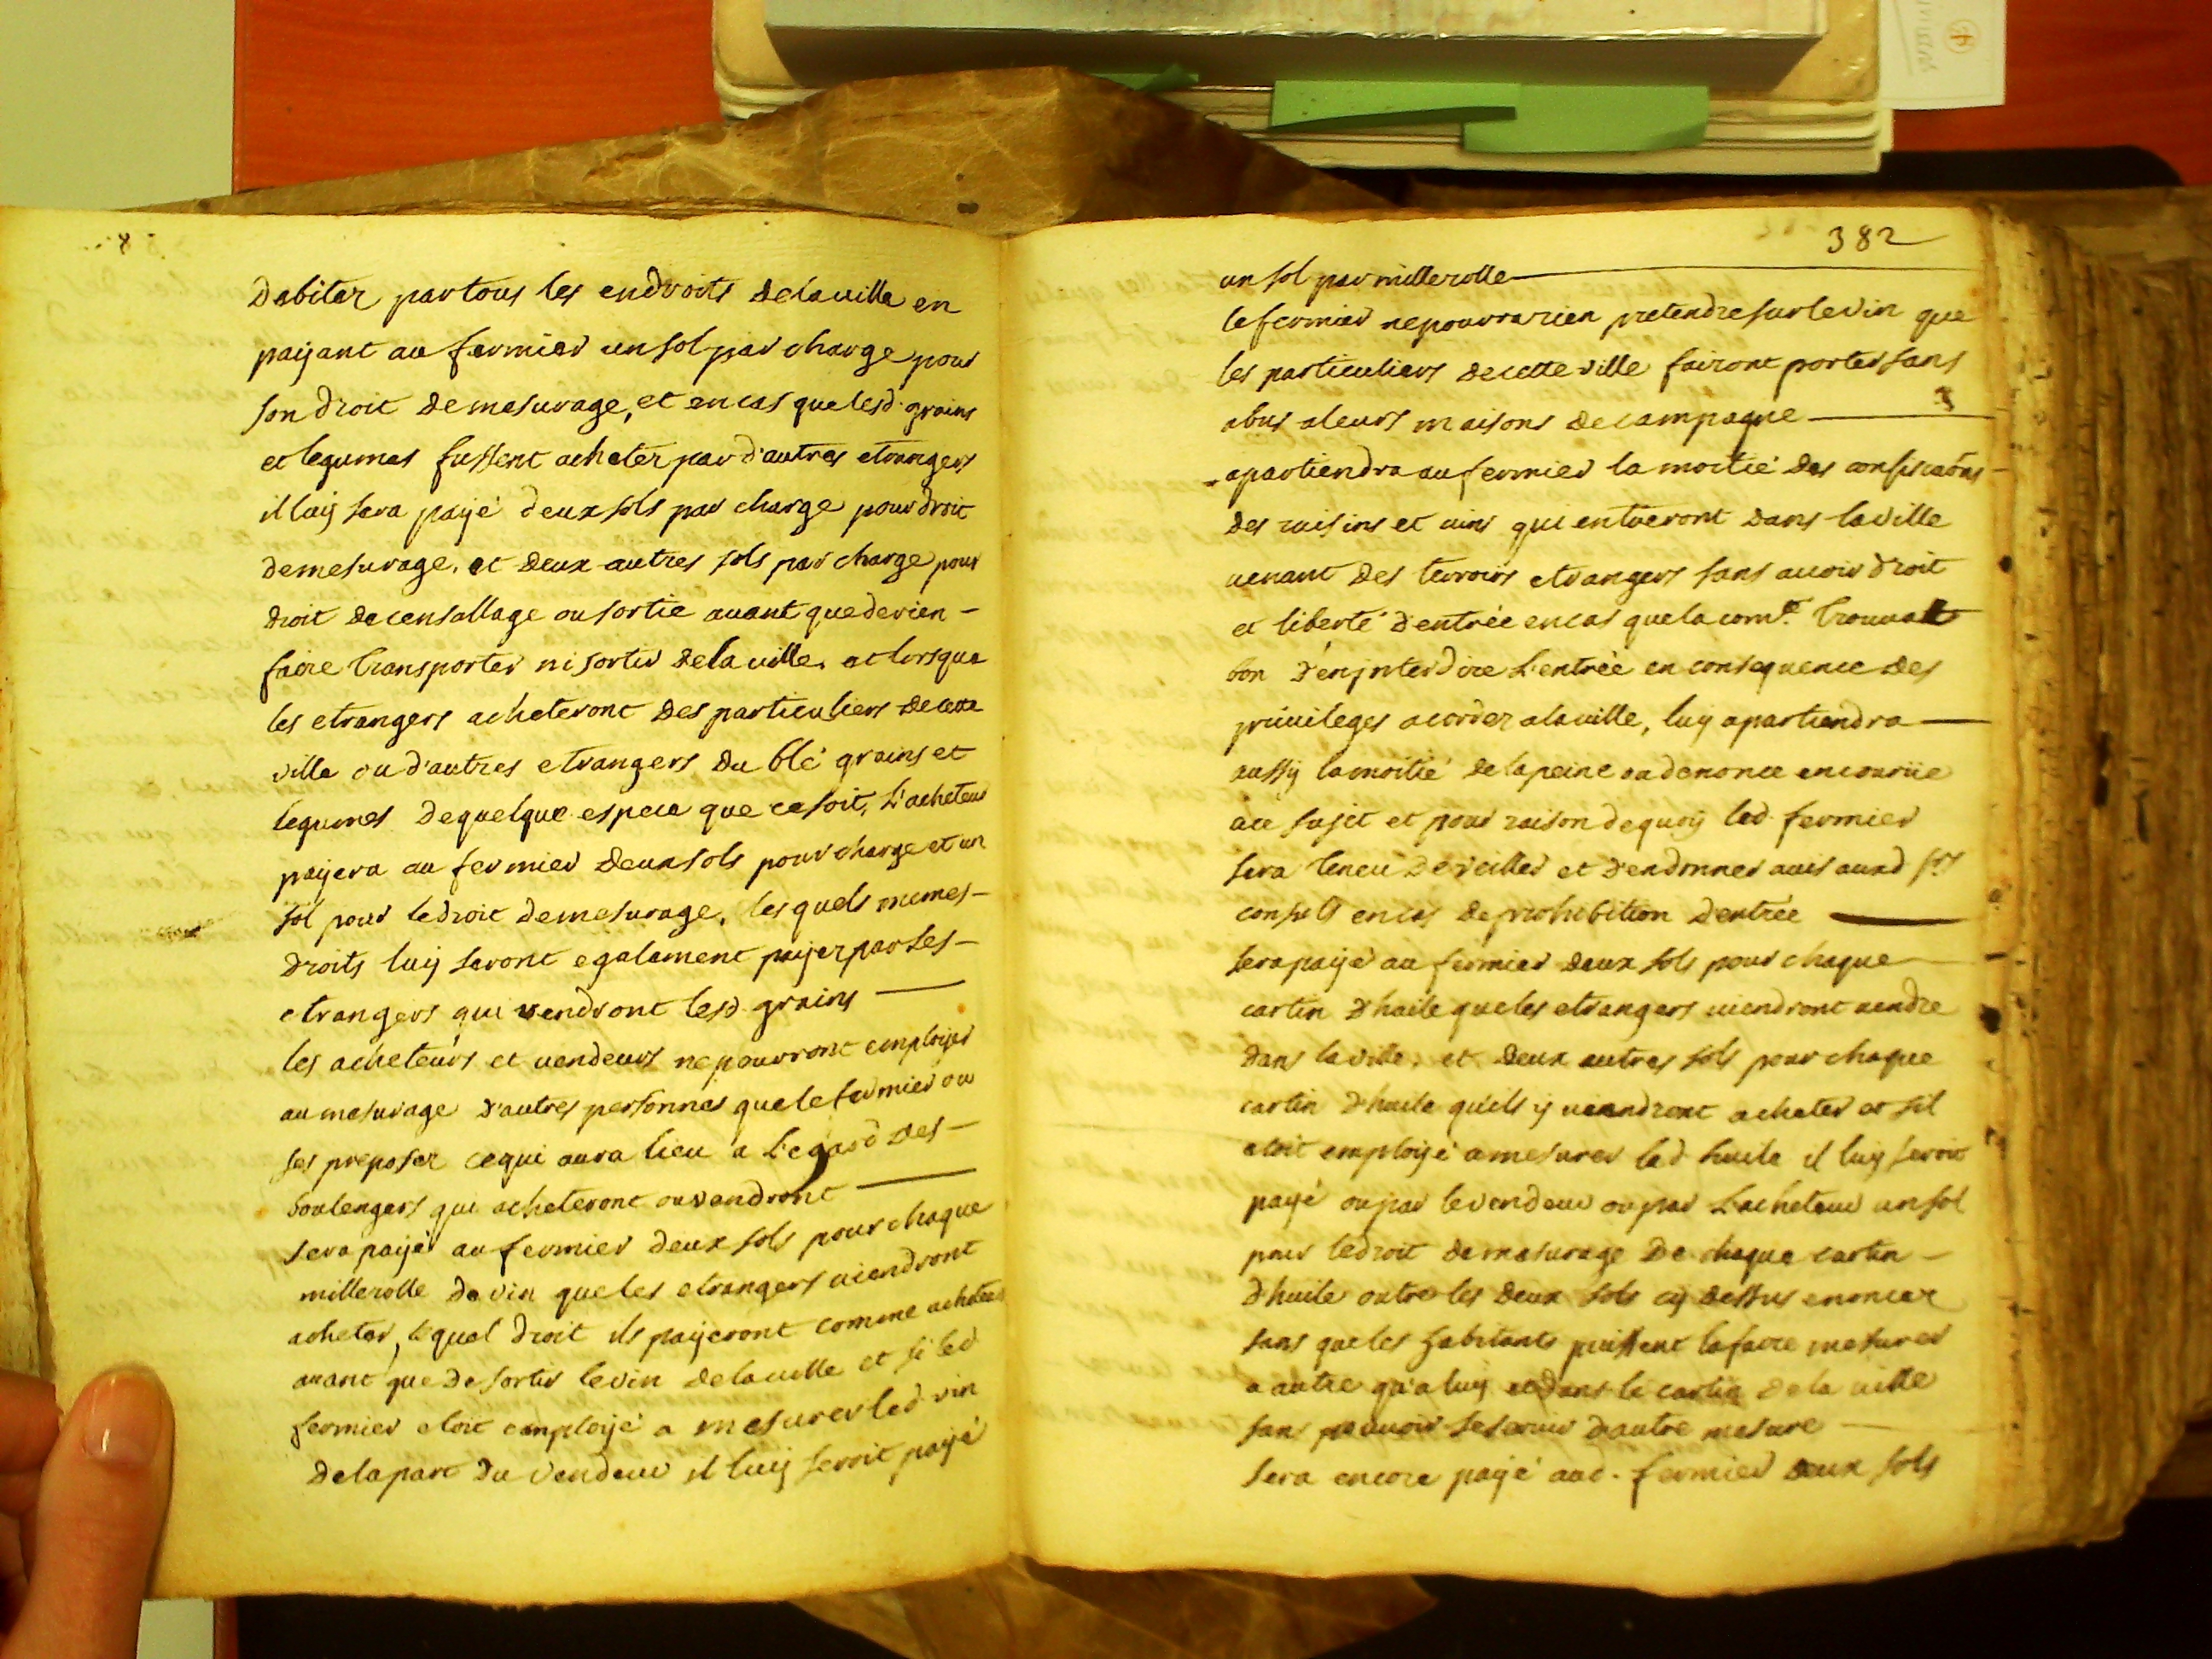 debiter par tous les endroits de la ville en
payant au fermier un sol par charge pour
son droit de mesurage, et en cas que lesd. grains
et legumes fussent acheter par d'autres etrangers
il luy sera payé deux sols par charge pour droit
de mesurage, et deux autres sols par charge pour
droit de censallage ou sortie auant que de rien -
faire transporter ni sortir de la uille, et lorsque
les etrangers acheteront des particuliers de cette
ville ou d'autres etrangers du blé grains et
legumes de quelque espece que ce soit, L'acheteur
payera au fermier deux sols pour charge et un
sol pour le droit de mesurage, lesquels memes -
droits luy seront egalement payer par les -
etrangers qui vendront lesd. grains
les acheteurs et uendeurs ne pourront employer
au mesurage d'autres personnes que le fermier ou
ses preposer ce qui aura lieu a L'egard des -
boulengers qui acheteront ou vendront
sera payé au fermier deux sols pour chaque
millerolle de vin que les etrangers uiendront
acheter, lequel droit ils payeront comme acheteurs
auant que de sortir le vin de la uille et si led
fermier etoit employé a mesurer led vin
de la part du vendeur il luy seroit payé
382
un sol par millerolle
le fermier ne pourra rien pretendre sur le vin que
les particuliers de cette ville fairont porter sans
abus a leurs maisons de campagne
apartiendra au fermier la moitié des confisca͠ons -
des raisins et uins qui entreront dans la ville
uenant des terroirs etrangers sans auoir droit
et liberté d'entrée en cas que la com.té trouuat
bon d'en jnterdire L'entrée en consequence des
priuileges acorder a la uille, luy apartiendra
aussy la moitié de la peine ou denonce encourüe
a ce sujet et pour raison de quoy led. fermier
sera teneu de veiller et d'en donner auis auxd srs
consuls en cas de prohibition d'entrée
sera payé au fermier deux sols pour chaque
cartin d'huile que les etrangers uiendront uendre
dans la ville, et deux autres sols pour chaque
cartin d'huile qu'ils y uiendront acheter et sil
etoit employé a mesurer lad huile il luy seroit
payé ou par le vendeur ou par L'acheteur un sol
pour le droit de mesurage de chaque cartin -
d'huile outre les deux sols cy dessus enoncer
sans que les habitants puissent la faire mesurer
a autre qu'a luy et dans le cartin de la uille
sans pouuoir se seruir d'autre mesure
sera encore payé aud. fermier deux sols